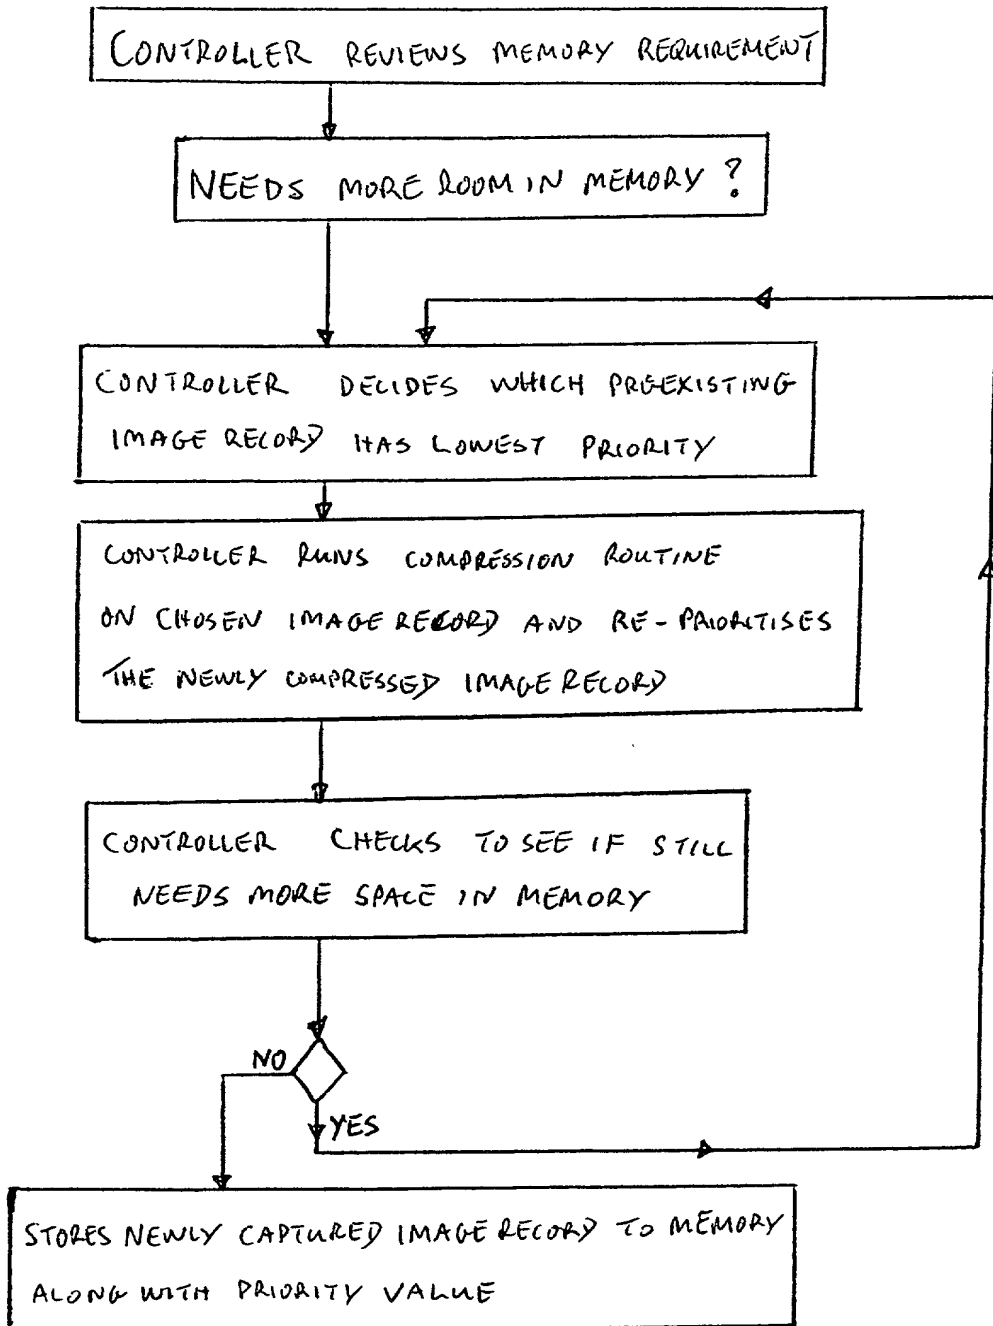 CONTROLLER REVIEWS MEMORY REQUIREMENT
NEEDS MORE ROOM IN MEMORY ?
CONTROLLER DECIDES WHICH PREEXISTING
IMAGE RECORD HAS LOWEST PRIORITY
CONTROLLER RUNS COMPRESSION ROUTINE
ON CHOSEN IMAGE RECORD AND RE-PRIORITISES
THE NEWLY COMPRESSED IMAGE RECORD
CONTROLLER CHECKS TO SEE IF STILL
NEEDS MORE SPACE IN MEMORY
NO
YES
STORES NEWLY CAPTURED IMAGE RECORD TO MEMORY
ALONG WITH PRIORITY VALUE